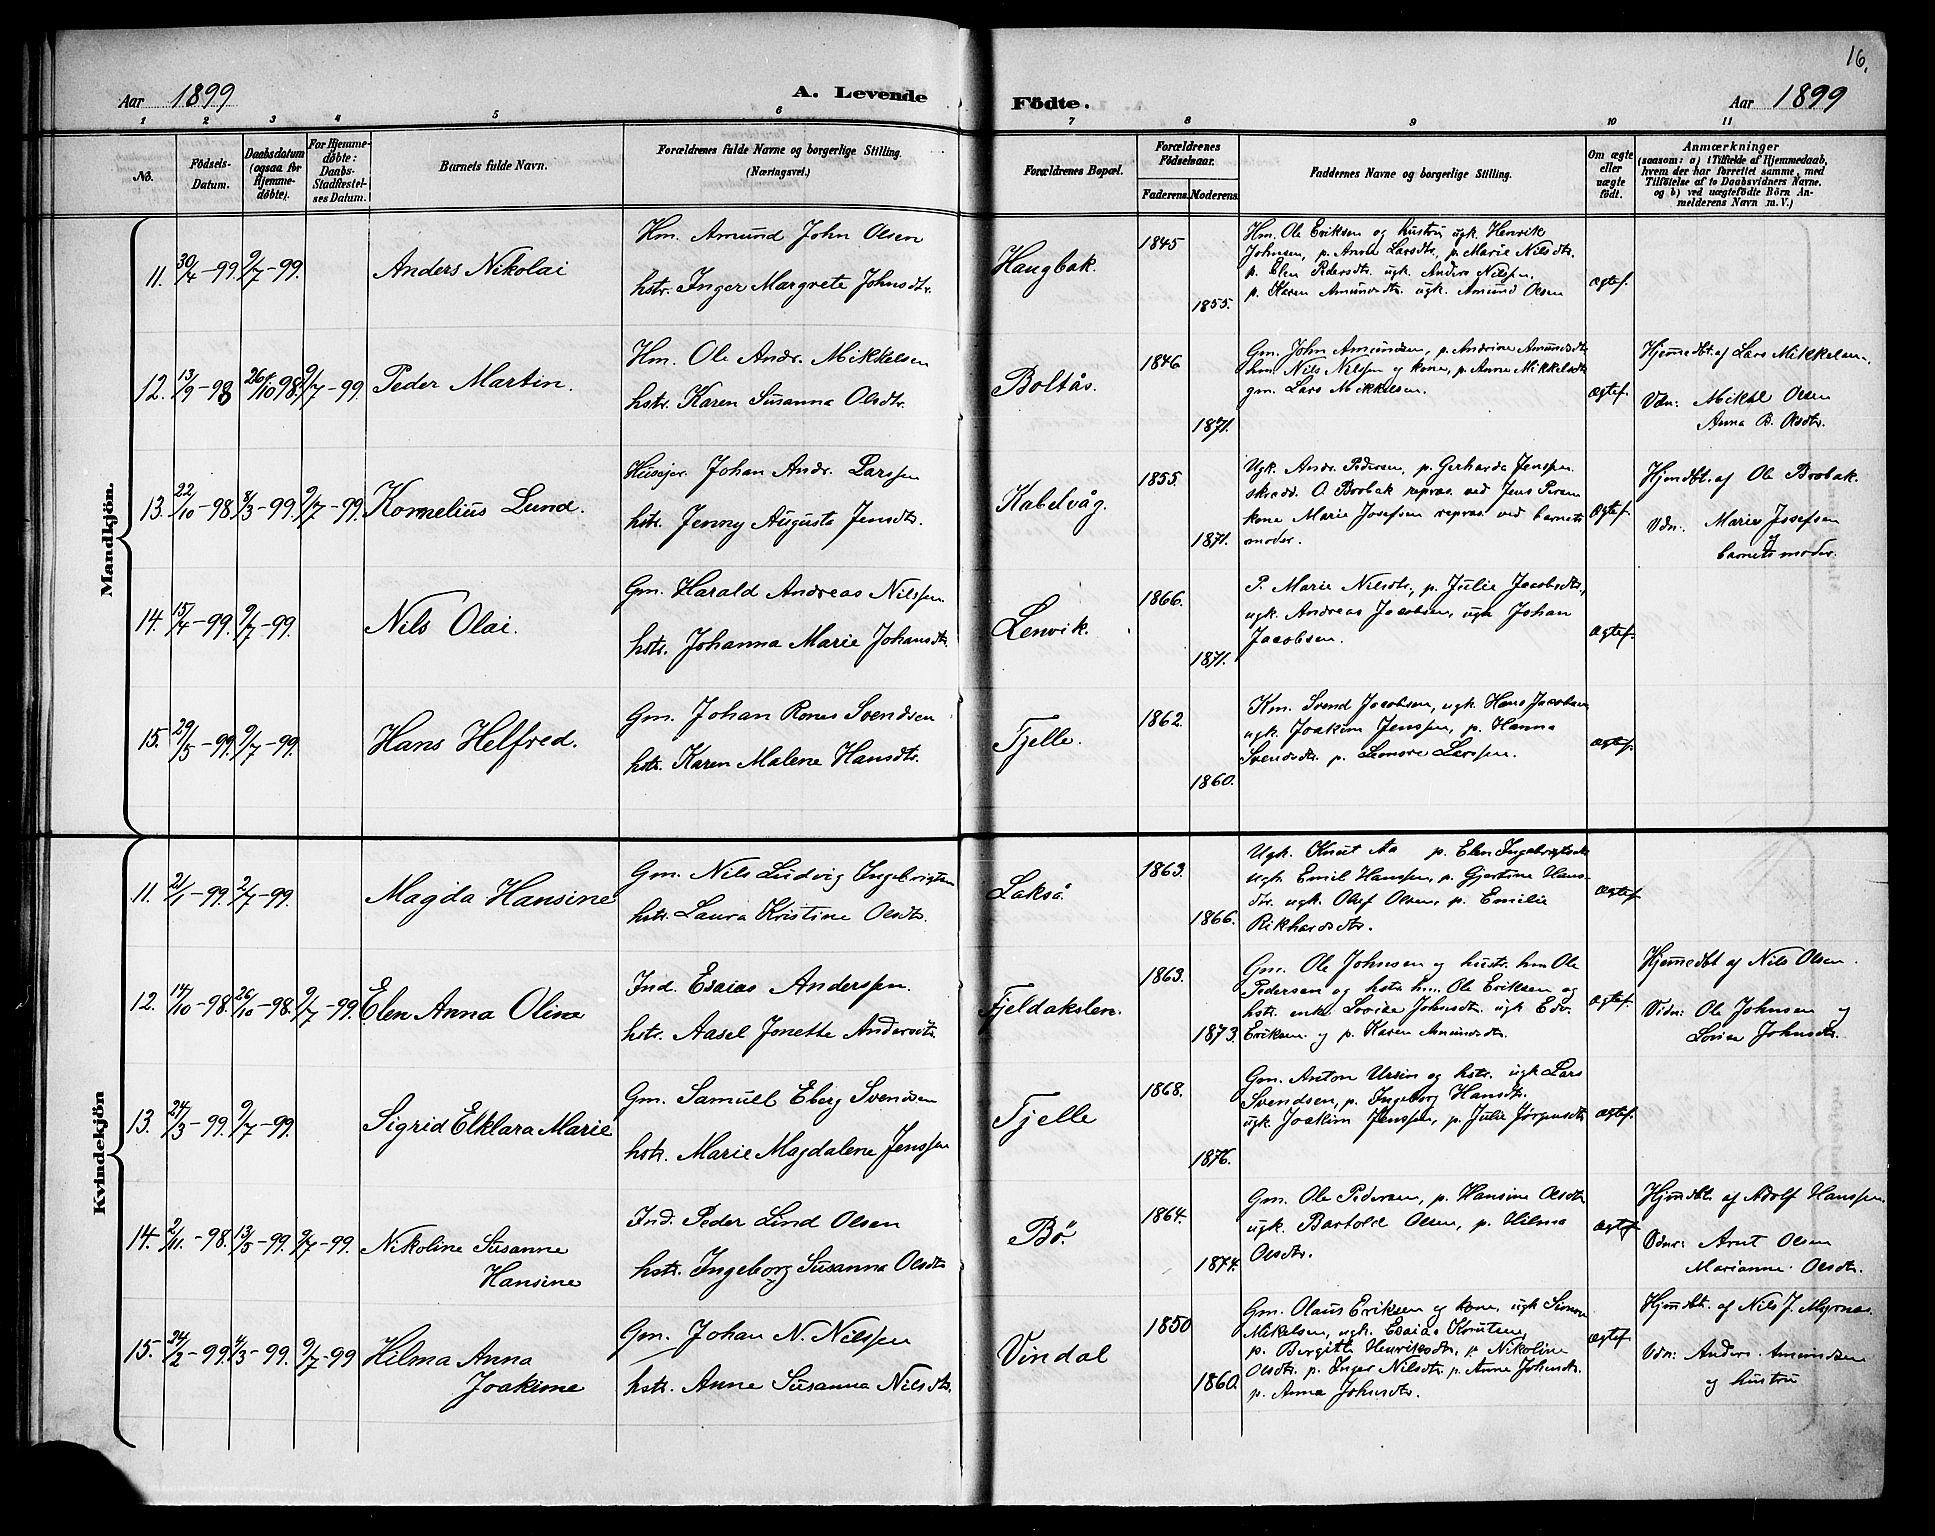 16.
Aar 1899 A. Levende Födte. Aar 1899
1 2 3 4 5 6 7 8 9 10 11
No.
Födsels-Datum.
Daabsdatum (ogsaa for Hjemme-döbte).
For Hjemme-döbte: Daabs-Stadfæstel-ses Datum.
Barnets fulde Navn.
Forældrenes fulde Navne og borgerlige Stilling.
(Næringsvei.)
Forældrenes Bopæl.
Forældrenes Födselsaar.
Faderens. Moderens.
Faddernes Navne og borgerlige Stilling.
Om ægte eller uægte födt.
Anmærkninger
(saasom: a) i Tilfælde af Hjemmedaab,
hvem der har forrettet samme, med
Tilföielse af to Daabsvidners Navne,
og b) ved uægtefödte Börn An-
melderens Navn m. V.)
Mandkjön.
11. 30/4-99. 9/7-99. Anders Nikolai
Hm. Amund John Olsen
hstr. Inger Margrete Johnsdtr.
Haugbak. 1845 1855.
Hm. Ole Eriksen og hustru ugk. Henrik
Johnsen, p. Anna Larsdtr, p. Marie Nilsdtr.
p. Elen Pedersdtr. ugk. Anders Nilsen
p. Karen Amundsdtr. ugk. Amund Olsen
ægtef.
12. 13/9-98 26/10 98. 9/7-99. Peder Martin.
Hm. Ole Andr. Mikkelsen
hstr. Karen Susanna Olsdtr.
Boltås. 1846 1871.
Gm. John Amundsen, p. Andrine Amundsdtr
hm Nils Nilssen og kone, p. Anne Mikkelsdtr
gm. Lars Mikkelsen.
ægtef.
Hjemmedbt. af Lars Mikkelsen
Vdn: Mikal Olsen
Anna B. Olsdtr.
13. 22/10-98 8/3-99. 9/7-99. Kornelius Lund.
Husejer Johan Andr. Larssen
hstr. Jenny Augusta Jensdtr.
Kabelvåg. 1855. 1871.
Ugk. Andr. Pedersen, p. Gerharda Jenssen
skrædd. O. Brobak repræs. ved Jens
kone Marie Josefsen repræs. ved barnets
moder.
ægtef.
Hjemdbt. af Ole Brobak.
Vdn: Marie Josefsen
barnets moder.
14. 15/4-99. 9/7-99. Nils Olai.
Gm. Harald Andreas Nilssen
hstr. Johanna Marie Johansdtr.
Lenvik. 1866. 1871.
P. Marie Nilsdtr, p. Julie Jacobsdtr,
ugk. Andreas Jacobsen, ugk Johan
Jacobsen.
ægtef.
15. 29/5-99. 9/7-99. Hans Helfred.
Gm. Johan Rones Svendsen
hstr. Karen Malene Hansdtr.
Tjelle. 1862. 1860.
Km. Svend Jacobsen, ugk. Hans Jacobsen
ugk. Joakim Jenssen, p. Hanna
Svendsdtr. p. Leonore Larssen.
ægtef.
Kvindekjön
11. 21/1-99. 2/7-99. Magda Hansine
Gm. Nils Ludvig Ingebrigtsen
hstr. Laura Kristine Olsdtr.
Lakså. 1863. 1866.
Ugk. Knut Aa p. Elen Ingebrigtsdtr
ugk. Emil Hanssen, p. Gjertine Hans-
dtr. ugk. Oluf Olsen, p. Emilie
Rikhardsdtr.
ægtef.
12. 14/10-98. 26/10-98. 9/7-99. Elen Anna Oline
Ind. Esaias Anderssen.
hstr. Aasel Jonette Andersdtr.
Fjeldakslen. 1863. 1873.
Gm. Ole Johnsen og hustr. hm Ole
Pedersen og hstr. h.... Ole Eriksen og
hstr. enke. Lovise Johnsdtr. ugk Edv.
Eriksen og p. Karen Amundsdtr.
ægtef.
Hjemmedbt af Nils Olsen.
Vidn: Ole Johnsen og
Lovise Johnsdtr.
13. 24/3-99. 9/7-99. Sigrid Elklara Marie
Gm. Samuel Eberg Svendsen
hstr. Marie Magdalene Jenssen
Tjelle 1868. 1876.
Gm. Anton Ursin og hstr. ugk Lars
Svendsen, p. Ingeborg Hansdtr.
ugk. Joakim Jenssen, p. Julie Jørgensdtr.
ægtef.
14. 2/11-98. 13/5-99. 9/7-99. Nikoline Susanne
Hansine
Ind. Peder Lind Olsen
hstr. Ingeborg Susanna Olsdtr
Bö. 1864. 1874.
Gm. Ole Pedersen, p. Hansine Olsdtr
ugk. Bartold Olsen, p. Hilma
Olsdtr.
ægtef.
Hjemdbt. af Adolf Hanssen.
Vdnr: Arnt Olsen
Marianne Olsdtr.
15. 24/2-99. 4/3-99. 9/7-99 Hilma Anna
Joakime
Gm. Johan N. Nilssen
hstr. Anne Susanna Nilsdtr.
Vindal 1850 1860.
Gm. Olaus Eriksen og kone, ugk Simon
Mikelsen, ugk. Esaias Knutsen,
p. Bergitte Henriksdtr, p. Nikoline
Olsdtr. p. Inger Nilsdtr. p. Anne Johnsdtr.
p. Anna Johnsdtr.
ægtef.
Hjemdbt. af Nils J. Myrnas.
Vdn: Anders Amundsen
og hustru